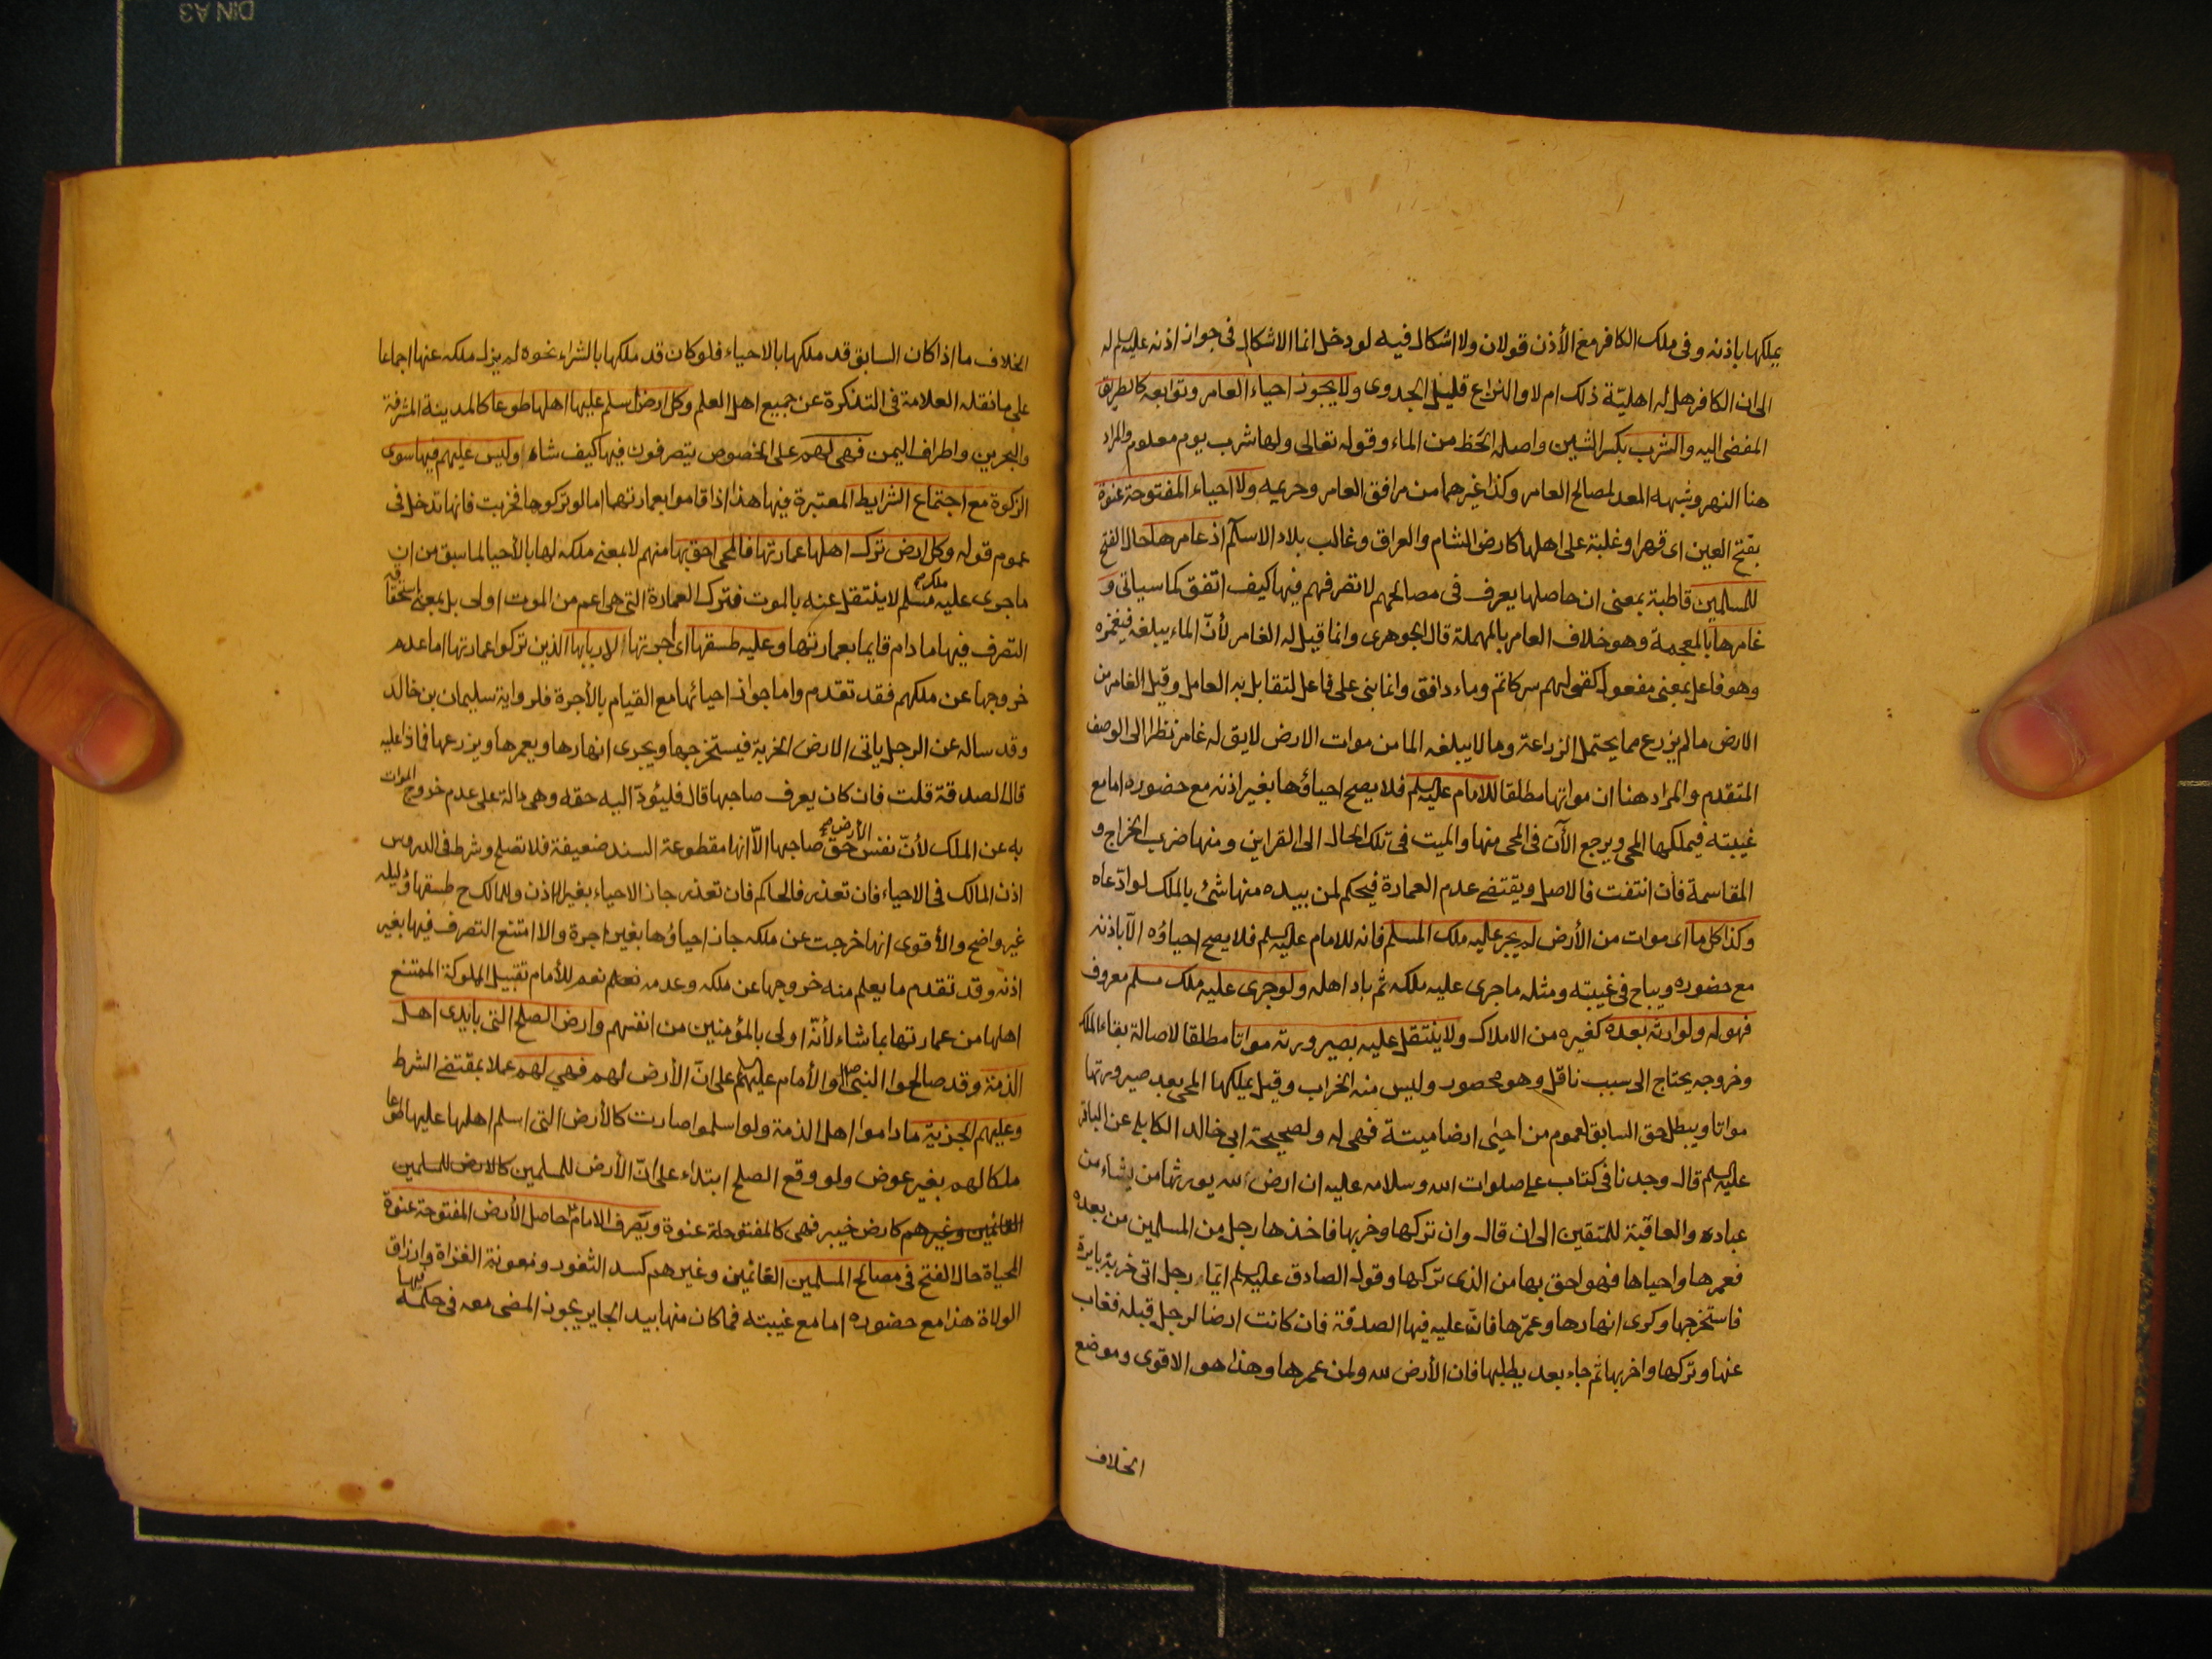 يملكها باذنه وفى ملك الكافر مع الأذن قولان ولا اشكال فيه لو دخل انما الاشكال فى جواز اذنه عليه السلم له
الى ان الكافر هل له اهليّة ذلك ام لا والنزاع قليل الجدوى ولا يجوز احياء العامر وتوابعه كالطريق
المفضى اليه والشرب بكسر الشين واصله الحظ من الماء وقوله تعالى ولها شرب يوم معلوم والمراد
هنا النهر وشبهه المعد لمصالح العامر وكذا غيرهما من مرافق العامر وحريمه ولا احياء المفتوحة عنوة
بفتح العين اى قهرا وغلبة على اهلها كارض الشام والعراق وغالب بلاد الاسلام اذ عامرها حال الفتح
للمسلمين قاطبة بمعنى ان حاصلها يصرف فى مصالحهم لا تصرفهم فيها كيف اتفق كما سياتى و
غامرها بالمعجمة وهو خلاف العامر بالمهملة قال الجوهرى وانما قيل له الغامر لأنّ الماء يبلغه فيغمره
وهو فاعل بمعنى مفعول كقولهم سر كاتم وماء دافق وانما بنى على فاعل لتقابل به العامل وقيل الغامر من
الارض ما لم يزرع مما يحتمل الزراعة وما لا يبلغه الما من موات الارض لا يق له غامر نظرا الى الوصف
المتقدم والمراد هنا ان مواتها مطلقا للامام عليه السلم فلا يصح احياؤها بغير اذنه مع حضوره اما مع
غيبته فيملكها المحى ويرجع الأن فى المحى منها والميت فى تلك الحال الى القراين ومنها ضرب الخراج و
المقاسمة فأن انتفت فالاصل ويقتضى عدم العمارة فيحكم لمن بيده منها شئ بالملك لو ادّعاه
وكذا كل ما اى موات من الأرض لم يجر عليه ملك المسلم فانه للامام عليه السلم فلا يصح احياؤه الّا باذنه
مع حضوره ويباح فى غيبته ومثله ما جرى عليه ملكه ثم باد اهله ولو جرى عليه ملك مسلم معروف
فهو له ولوارثه بعده كغيره من الاملاك ولا ينتقل عليه بصيرورته مواتا مطلقا لاصالة بقاء الملك
وخروجه يحتاج الى سبب ناقل وهو محصور وليس منه الخراب وقيل يملكها المحى بعد صيرورتها
مواتا ويبطل حق السابق لعموم من احيى ارضا ميتة فهى له ولصحيحة ابى خالد الكابلى عن الباقر
عليه السلم قال وجدنا فى كتاب على صلوات الله وسلامه عليه ان ارض الله يورثها من يشاء من
عباده والعاقبة للمتقين الى ان قال وان تركها وخربها فاخذها رجل من المسلمين من بعده
فعمرها واحياها فهو احق بها من الذى تركها وقول الصادق عليه السلم ايّما رجل اتى خربة بايرة
فاستخرجها وكرى انهارها وعمّرها فانّ عليه فيها الصدقة فان كانت ارضا لرجل قبله فغاب
عنها وتركها واخربها ثم جاء بعد يطلبها فان الأرض لله ولمن عمرها وهذا هو الاقوى وموضع
الخلاف
الخلاف ما اذا كان السابق قد ملكها بالاحياء فلو كان قد ملكها بالشراء ونحوه لم يزل ملكه عنها اجماعا
على ما نقله العلامة فى التذكرة عن جميع اهل العلم وكل ارض اسلم عليها اهلها طوعا كالمدينة المشرفة
والبحرين واطراف اليمن فهى لهم على الخصوص يتصرفون فيها كيف شاء وليس عليهم فيها سوى
الزكوة مع اجتماع الشرايط المعتبرة فيها هذا اذا قاموا بعمارتها اما لو تركوها فخربت فانها تدخل فى
عموم قوله وكل ارض ترك اهلها عمارتها فالمحى احق بها منهم لا بمعنى ملكه لها بالأحيا لما سبق من ان
ما جرى عليه ملك مسلم لا ينتقل عنه بالموت فترك العمارة التى هى اعم من الموت اولى بل بمعنى استحقاقه
التصرف فيها ما دام قايما بعمارتها وعليه طسقها اى اجرتها لاربابها الذين تركوا عمارتها اما عدم
خروجها عن ملكهم فقد تقدم واما جواز احيائها مع القيام بالأجرة فلرواية سليمان بن خالد
وقد ساله عن الرجل ياتى الارض الخربة فيستخرجها ويجرى انهارها ويعمرها ويزرعها فماذا عليه
قال الصدقة قلت فان كان يعرف صاحبها قال فليؤدّ اليه حقه وهى دالة على عدم خروج الموات
به عن الملك لأنّ نفس الأرض حق صاحبها الّا انها مقطوعة السند ضعيفة فلا تصلح وشرط فى الدروس
اذن المالك فى الاحياء فان تعذر فالحاكم فان تعذر جاز الاحياء بغير اذن وللمالك ح طسقها ودليله
غير واضح والأقوى انها خرجت عن ملكه جاز احياؤها بغير اجرة والا امتنع التصرف فيها بغير
اذنه وقد تقدم ما يعلم منه خروجها عن ملكه وعدمه نعم للأمام تقبيل المملوكة الممتنع
اهلها من عمارتها بما شاء لأنّه اولى بالمؤمنين من انفسهم وارض الصلح التى بايدى اهل
الذمة وقد صالحوا النبى او الأمام عليهم على انّ الأرض لهم فهي لهم عملا بمقتضى الشرط
وعليهم الجزية ما داموا اهل الذمة ولو اسلموا صارت كالأرض التى اسلم اهلها عليها طوعا
ملكا لهم بغير عوض ولو وقع الصلح ابتداء على انّ الأرض للمسلمين كالارض للمسلمين
الغانمين وغيرهم كارض خيبر فهى كالمفتوحة عنوة ويصرف الامام حاصل الأرض المفتوحة عنوة
المحياة حال الفتح فى مصالح المسلمين الغانمين وغيرهم كسد الثغور ومعونة الغزاة وارزاق
الولاة هذا مع حضوره اما مع غيبته فما كان منها بيد الجاير يجوز المضى معه فى حكمه فيها